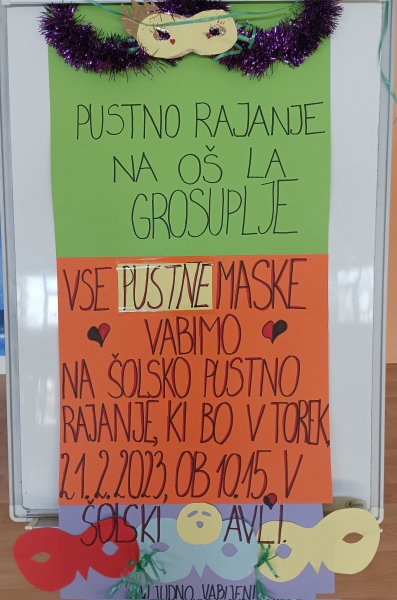 PUSTNO RAJANJE
NA OŠ LA
GROSUPLJE
VSE PUSTNE MASKE
VABIMO
NA ŠOLSKO PUSTNO
RAJANJE, KI BO V TOREK,
21.2.2023, OB 10.15, V
ŠOLSKI AVLI.
LJUDNO VABLJENI